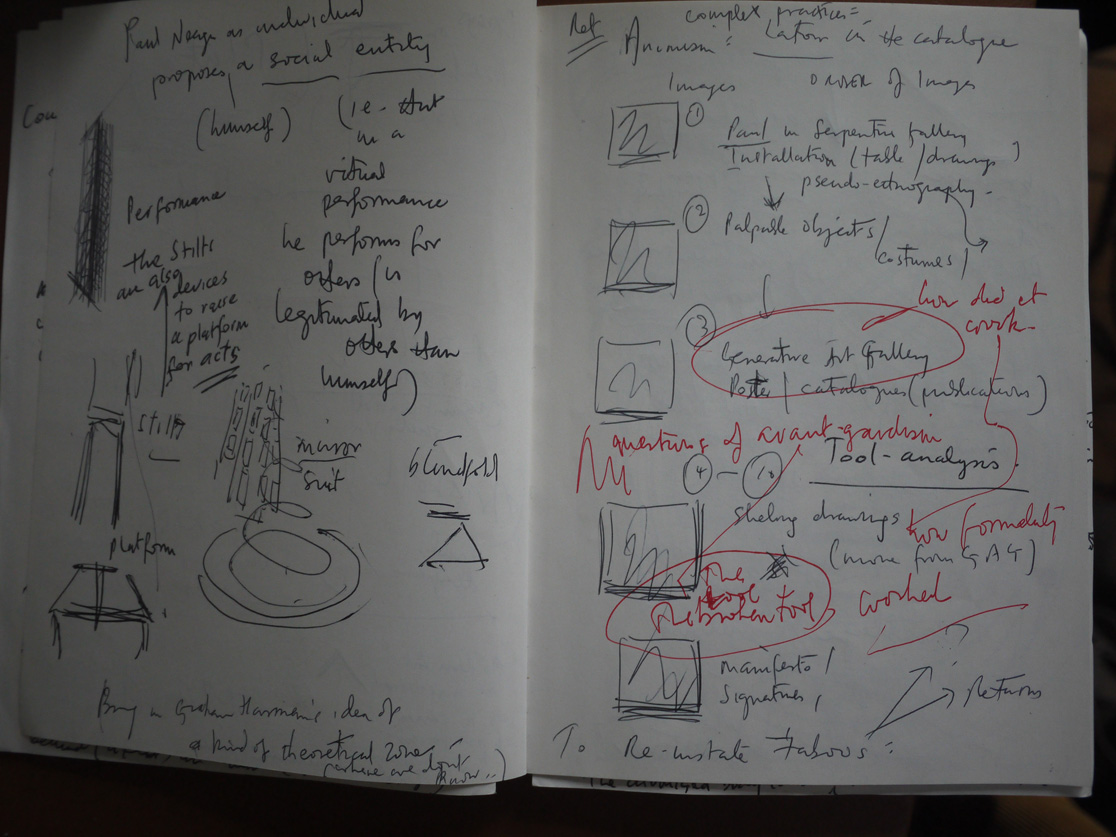 Paul Neagu as individual
proposes a social entity
(himself)
(ie - that
in a
virtual
performance
he performs for
others / is
legitimated by
others than
himself)
Performance
the Stilts
are also
devices
to raise
a platform
for acts
Stilts
mirror
Suit
blindfold
platform
Bring in Graham Harman's idea of
a kind of theoretical zone
(where we don't
know..)
Ref
complex practices =
Animism : Latour in the catalogue
Images
ORDER of Images
① Paul in Serpentine Gallery
Installation (table / drawings)
pseudo-ethnography -
② Palpable objects /
costumes /
how did it
work -
③ Generative Art Gallery
Poster / catalogues (publications)
questions of avant-gardism
④ - ⑩ Tool-analysis
drawings
(more from G A G)
how formulate
The
tool
The broken tool worked
manifesto /
signatures,
Returns
To Re-instate